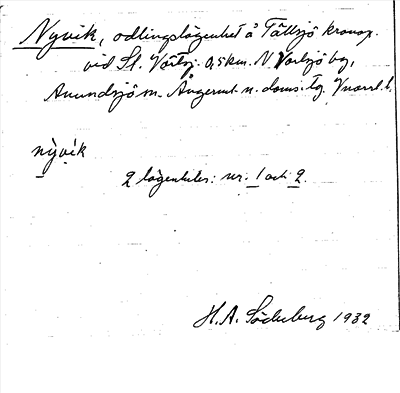 Nyvik, odlingslägenhet å Tällsjö kronop.
vid St. Varsj. 0,5 km. N. Varsjö by,
Anundsjö sn. Ångerml. n. doms. tg. Vnorrl. l.
nỳvík
2 lägenheter: nr. 1 och 2.
H.A. Söderberg 1932